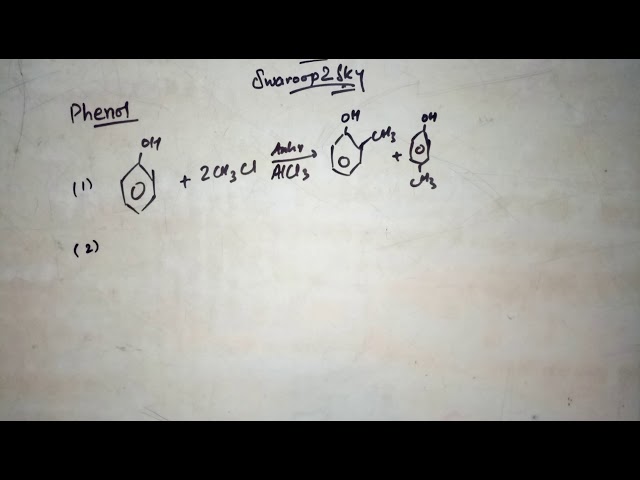 Swaroop2Sky
Phenol
(1) OH + 2CH3Cl Anhy AlCl3 OH CH3 + OH CH3
(2)